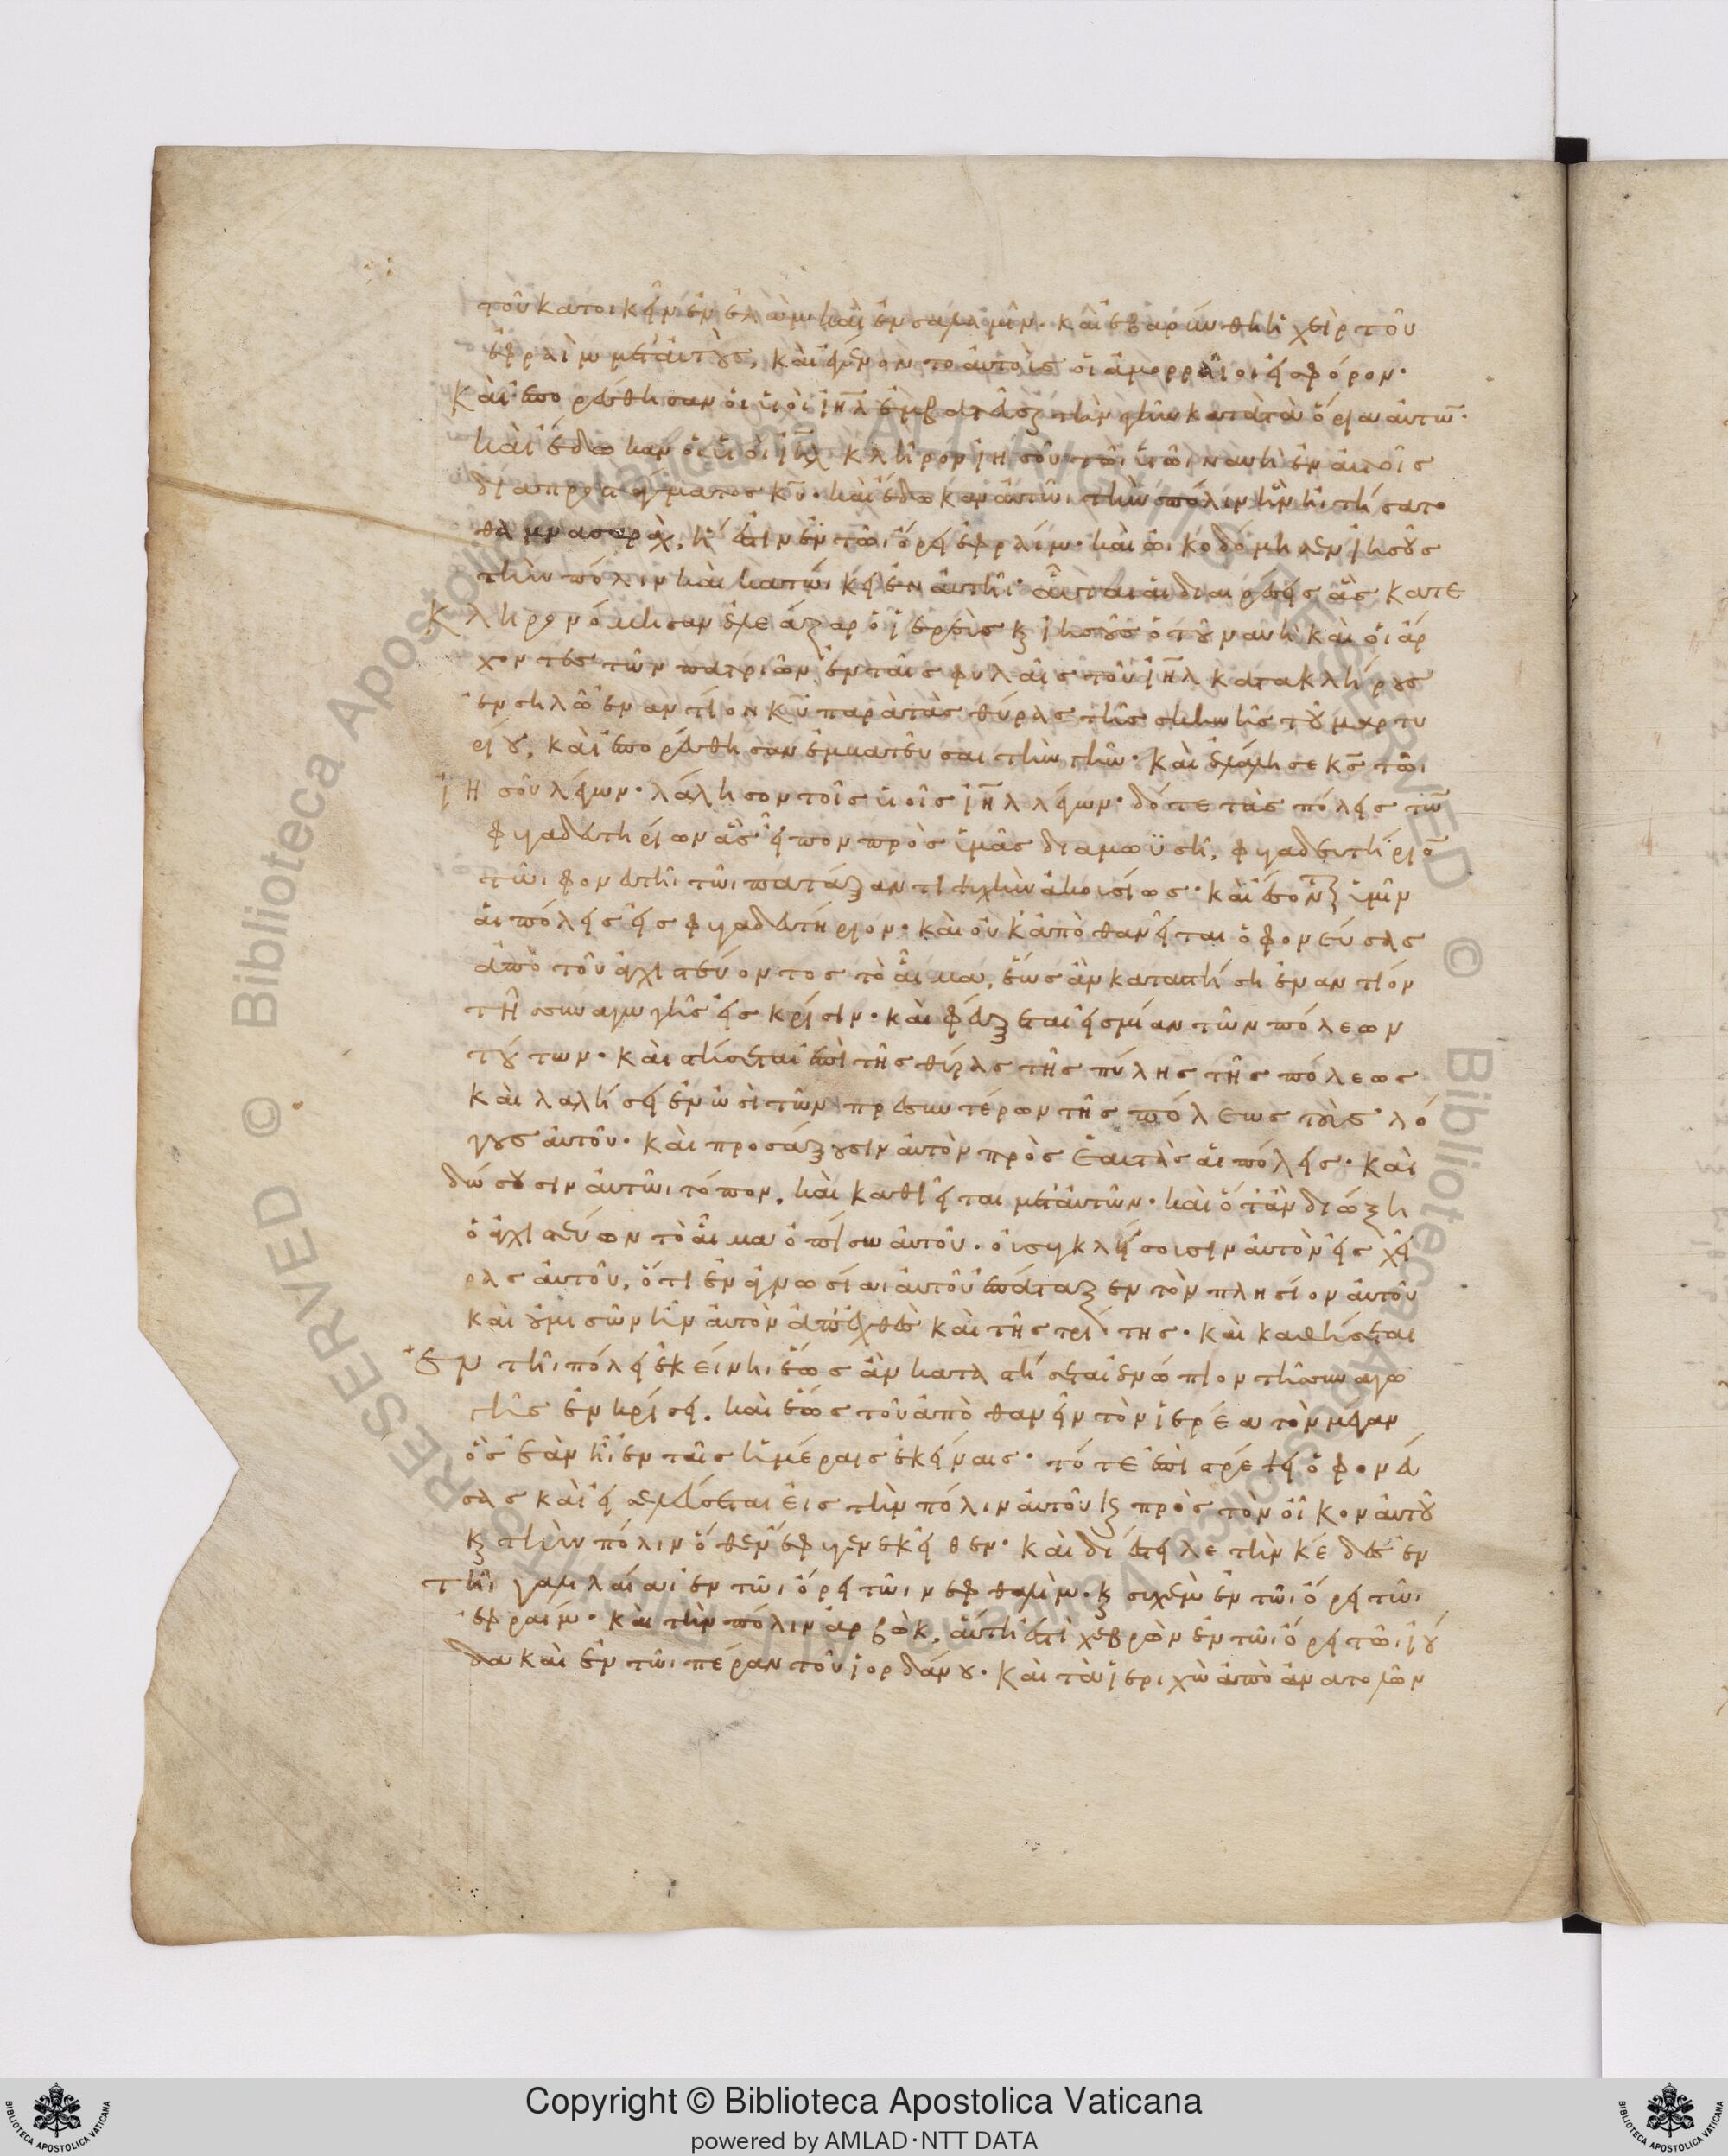 τοῦ κατοικεῖν ἐν ἐλὼμ καὶ ἐν σαλαμίν. καὶ ἐβαρύνθη ἡ χεὶρ τοῦ
ἐφραὶμ μετ' αὐτοὺς, καὶ ἐγένοντο αὐτοῖς οἱ ἀμορραῖοι εἰς φόρον.
Καὶ ἐπορεύθησαν οἱ υἱοὶ ἰηλ ἐμβατεῦσαι τὴν γῆν κατὰ τὰ ὅρια αὐτῶν.
καὶ ἔδωκαν οἱ υἱοὶ ἰηλ κλῆρον ἰησοῦ τῶι υἱῶι ναυὴ ἐν αὐτοῖς
διὰ προστάγματος κυ. καὶ ἔδωκαν αὐτῶι τὴν πόλιν ἣν ἠιτήσατο
θαμνασαρὰχ, ἥ ἐστιν ἐν τῶι ὄρει ἐφραίμ. καὶ ὠικοδόμησεν ἰησοῦς
τὴν πόλιν καὶ κατώικει ἐν αὐτῆι. αὗται αἱ διαιρέσεις ἃς κατε
Κληρονόμησαν ἐλεάζαρ ὁ ἱερεὺς κ ἰησοῦς ὁ τοῦ ναυὴ καὶ οἱ ἄρ
χοντες τῶν πατριῶν ἐν ταῖς φυλαῖς τοῦ ἰηλ κατὰ κλήρους
ἐν σηλῶ ἐναντίον κυ παρὰ τὰς θύρας τῆς σκηνῆς τοῦ μαρτυ
ρίου, καὶ ἐπορεύθησαν ἐμβατεῦσαι τὴν γῆν. Καὶ ἐλάλησε κς τῶι
ἰησοῦ λέγων. λάλησον τοῖς υἱοῖς ἰηλ λέγων. δότε τὰς πόλεις τῶν
φυγαδευτηρίων ἃς εἶπον πρὸς ὑμᾶς διὰ μωϋσῆ, φυγαδευτήριον
τῶι φονευτῆι τῶι πατάξαντι ψυχὴν ἀκουσίως. καὶ ἔσονται ὑμῖν
αἱ πόλεις εἰς φυγαδευτήριον. καὶ οὐκ ἀποθανεῖται ὁ φονεύσας
ἀπὸ τοῦ ἀγχιστεύοντος τὸ αἷμα, ἕως ἂν καταστήσῃ ἐναντίον
τῆς συναγωγῆς εἰς κρίσιν. καὶ φεύξεται εἰς μίαν τῶν πόλεων
τούτων. καὶ στήσεται ἐπὶ τῆς θύρας τῆς πύλης τῆς πόλεως
καὶ λαλήσει ἐν ὠσὶ τῶν πρεσβυτέρων τῆς πόλεως τοὺς λό
γους αὐτοῦ. καὶ προσάξουσιν αὐτὸν πρὸς ἑαυτὰς αἱ πόλεις. καὶ
δώσουσιν αὐτῶι τόπον, καὶ καθιεῖται μετ' αὐτῶν. καὶ ὅτ' ἂν διώξη
ὁ ἀγχιστεύων τὸ αἷμα ὀπίσω αὐτοῦ. οὐ συγκλείσουσιν αὐτὸν εἰς χεῖ
ρας αὐτοῦ, ὅτι ἐν ἀγνωσίαι αὐτοῦ ἐπάταξεν τὸν πλησίον αὐτοῦ
καὶ οὐ μισῶν ἦν αὐτὸν ἀπ' ἐχθὲς καὶ τῆς τρίτης. καὶ καθήσεται
Ἐν τῆι πόλει ἐκείνηι ἕως ἂν καταστήσεται ἐνώπιον τῆς συναγω
γῆς ἐν κρίσει. καὶ ἕως τοῦ ἀποθανεῖν τὸν ἱερέα τὸν μέγαν
ὃς ἐὰν ἦι ἐν ταῖς ἡμέραις ἐκείναις. τότε ἐπιστρέψει ὁ φονεύ
σας καὶ εἰσελεύσεται εἰς τὴν πόλιν αὐτοῦ κ πρὸς τὸν οἶκον αὐτοῦ
κ τὴν πόλιν ὅθεν ἔφυγεν ἐκεῖθεν. καὶ διέστειλε τὴν κέδες ἐν
τῆι γαλιλαίαι ἐν τῶι ὄρει τῶι νεφθαλίμ. κ συχὲμ ἐν τῶι ὄρει τῶι
ἐφραίμ. καὶ τὴν πόλιν ἀρβὸκ, αὕτη ἐστὶ χεβρὼν ἐν τῶι ὄρει τῶι ἰού
δα καὶ ἐν τῶι πέραν τοῦ ἰορδάνου. καὶ τὰ ἱεριχὼ ἀπὸ ἀνατολῶν
© Biblioteca Apostolica Vaticana ALL RIGHTS RESERVED
Copyright © Biblioteca Apostolica Vaticana
powered by AMLAD·NTT DATA
BIBLIOTECA APOSTOLICA VATICANA
BIBLIOTECA APOSTOLICA VATICANA